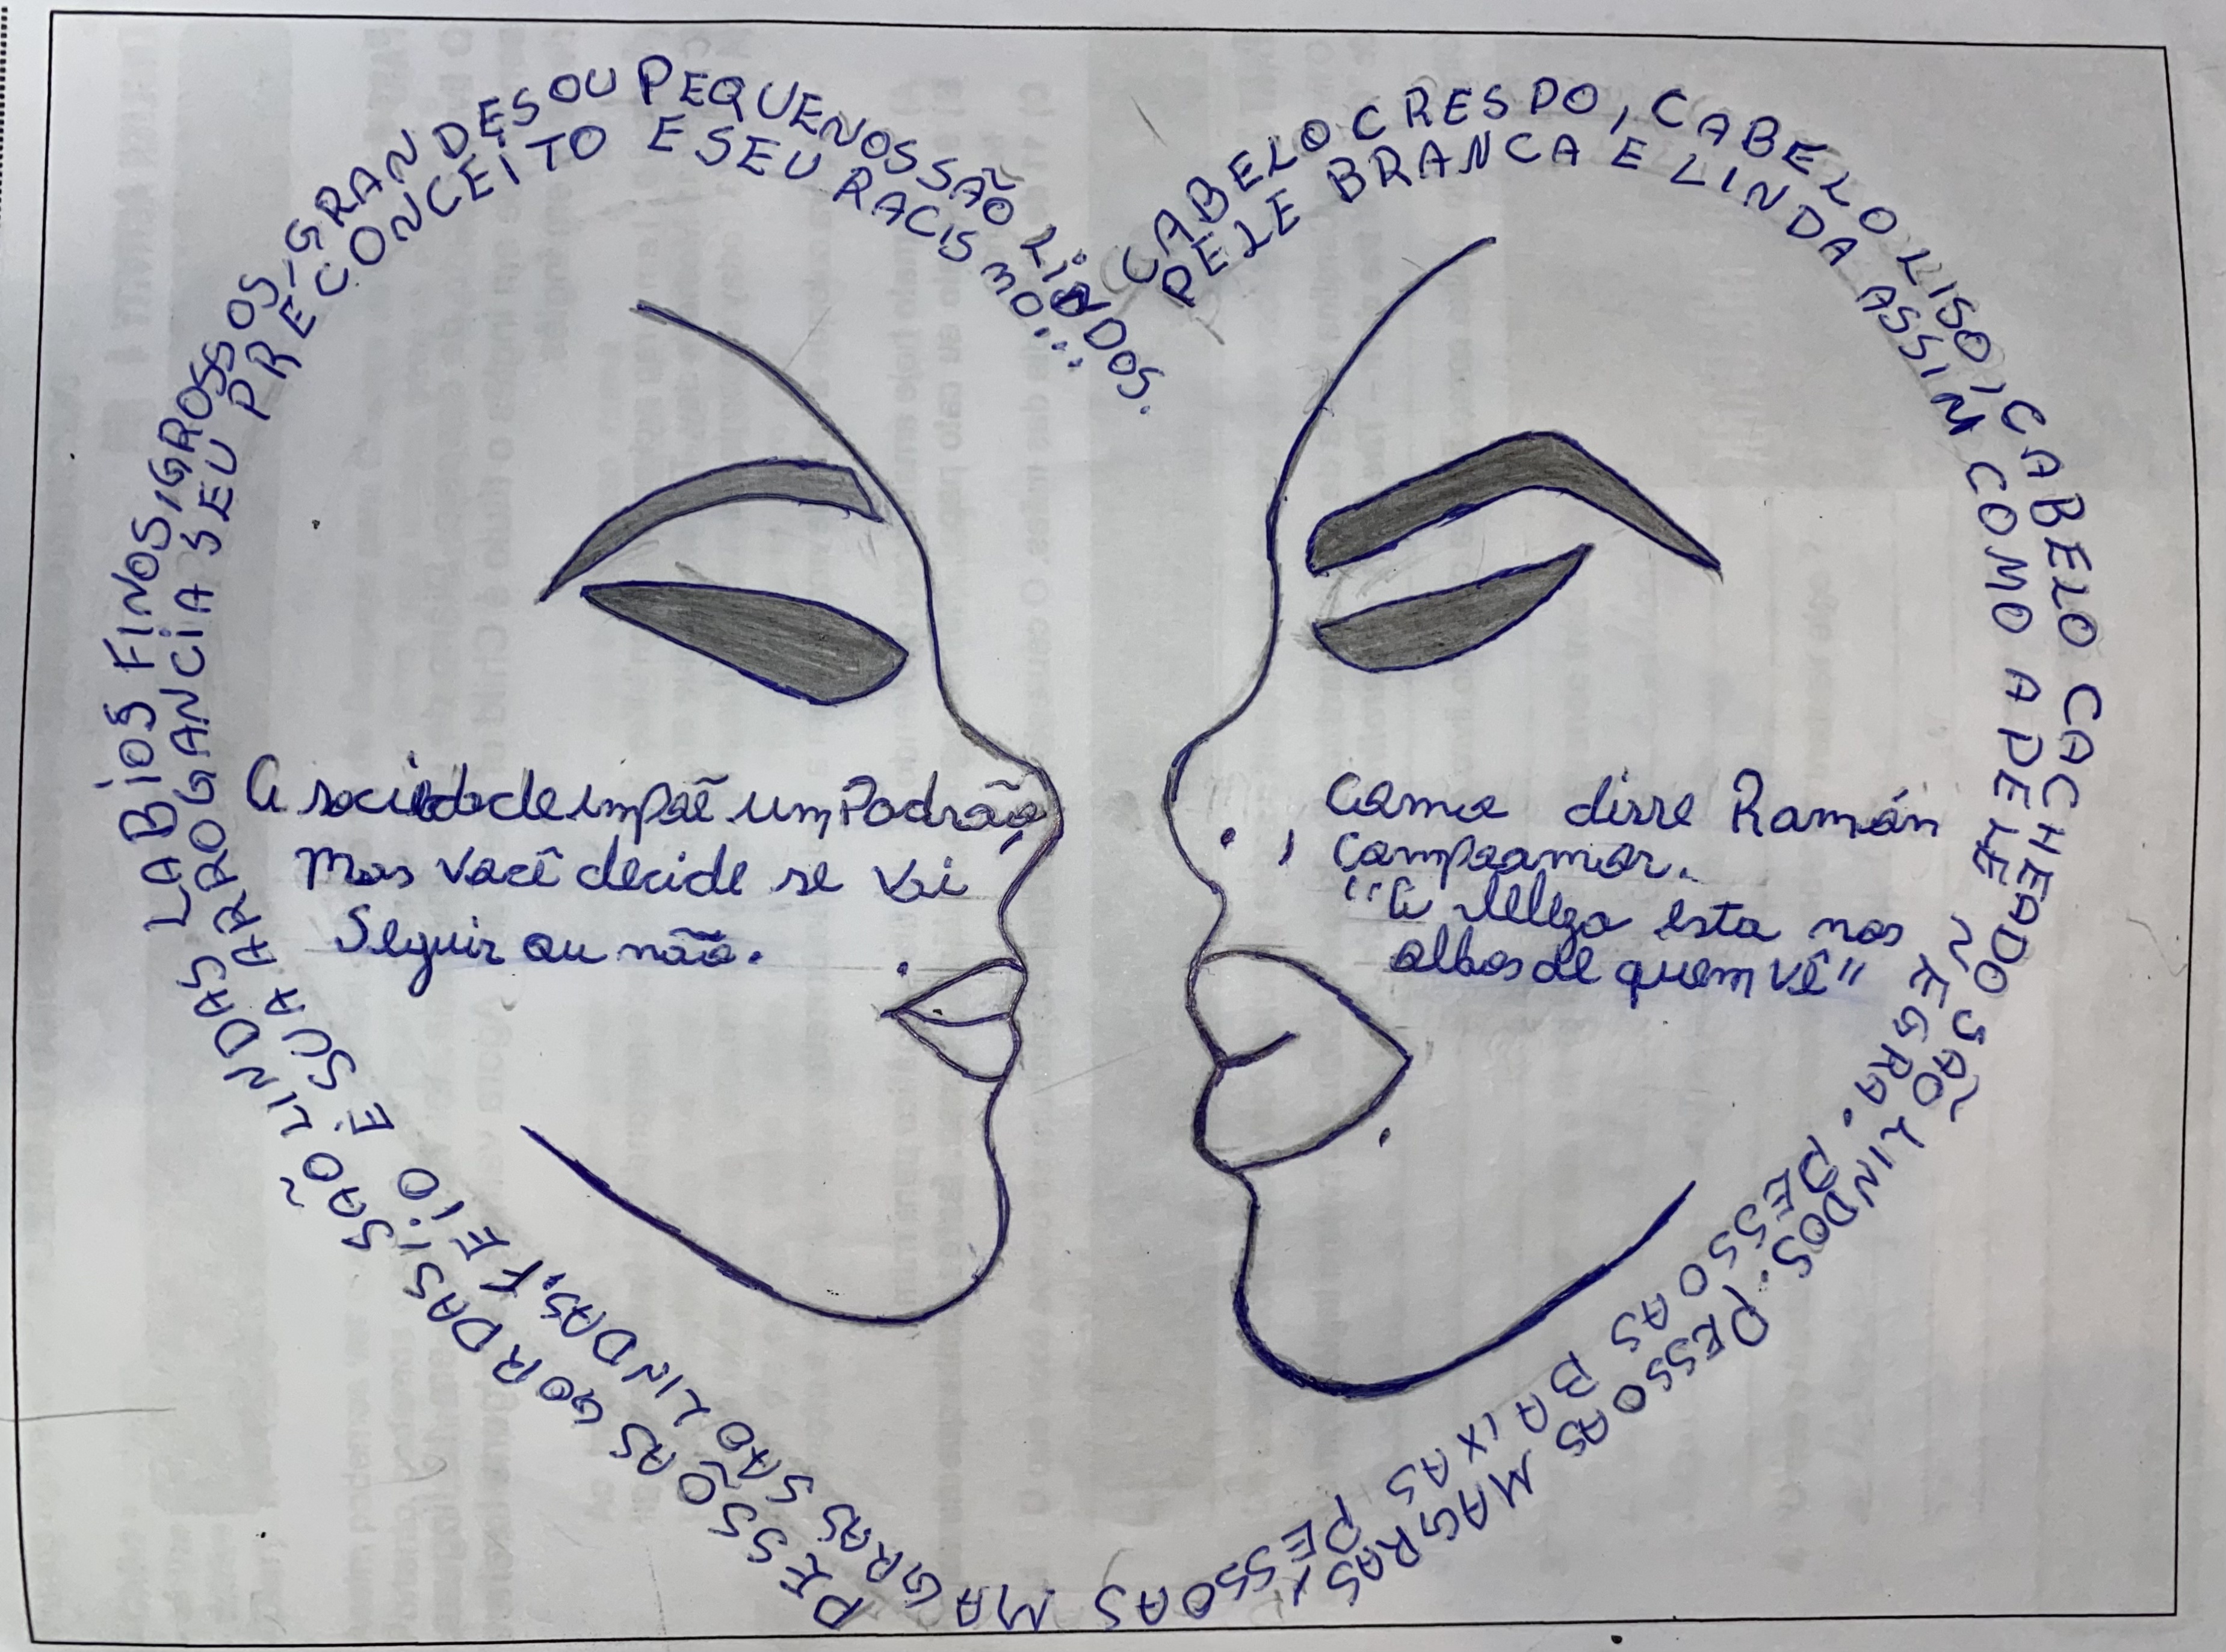 CABELO CRESPO, CABELO LISO, CABELO CACHEADO SÃO LINDOS. PESSOAS MAGRAS,
PESSÕAS GORDAS SÃO LINDAS LABIOS FINOS, GROSSOS, GRANDES OU PEQUENOS SÃO LINDOS.
PELE BRANCA E LINDA ASSIM COMO A PELE NEGRA. PESSOAS BAIXAS PESSOAS MAGRAS SÃO LINDAS, FEIO É SUA ARROGANCIA SEU PRECONCEITO E SEU RACISMO...
A sociedade impõe um Padrão,
mas você decide se vai
Seguir ou não.
Como disse Ramón
Campoamor.
"A beleza esta nos
olhos de quem vê"